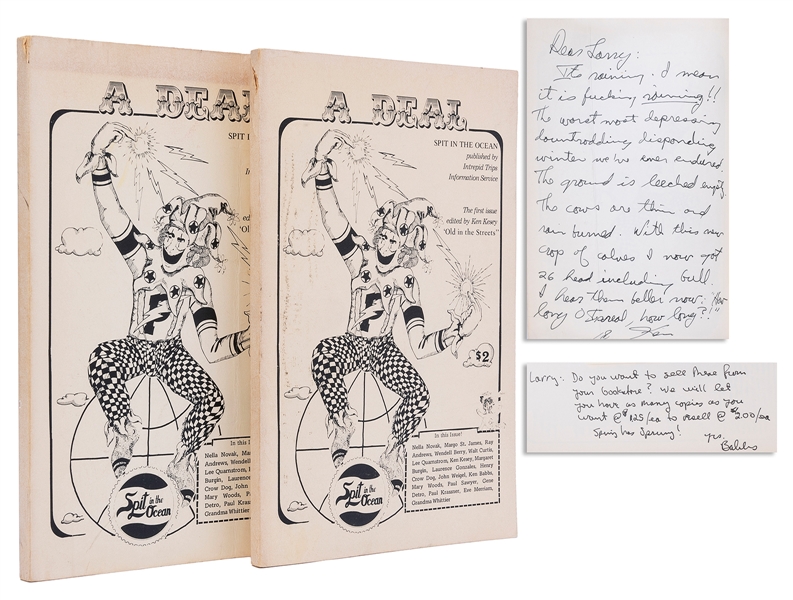 A DEAL
SPIT I
In
ed
'Ol
In this
Nella Novak, Mar
Andrews, Wendell
Lee Quarnstrom,
Burgin, Laurence
Crow Dog, John
Mary Woods, P
Detro, Paul Kras
Grandma Whittier
Spit in the
Ocean
A DEAL
SPIT IN THE OCEAN
published by
Intrepid Trips
Information Service
The first issue
edited by Ken Kesey
"Old in the Streets"
$2
In this Issue!
Nella Novak, Margo St. James, Ray
Andrews, Wendell Berry, Walt Curtis,
Lee Quarnstrom, Ken Kesey, Margaret
Burgin, Laurence Gonzales, Henry
Crow Dog, John Weigel, Ken Babbs,
Mary Woods, Paul Sawyer, Gene
Detro, Paul Krassner, Eve Merriam,
Grandma Whittier
Spit in the
Ocean
Dear Larry:
Its raining. I mean
it is fucking raining!!
The worst most depressing
downtrodding disponding
winter we've ever endured.
The ground is leeched empty
The cows are thin and
rain burned. With this new
crop of calves I now got
26 head including bull.
I hear them beller now: "How
long O Israel, how long?!"
Ken
Larry: Do you want to sell these from
your bookstore? We will let
you have as many copies as you
want @ $1.25/ea to resell @ $2.00/ea
Spring has Sprung! Yrs.
Babbs